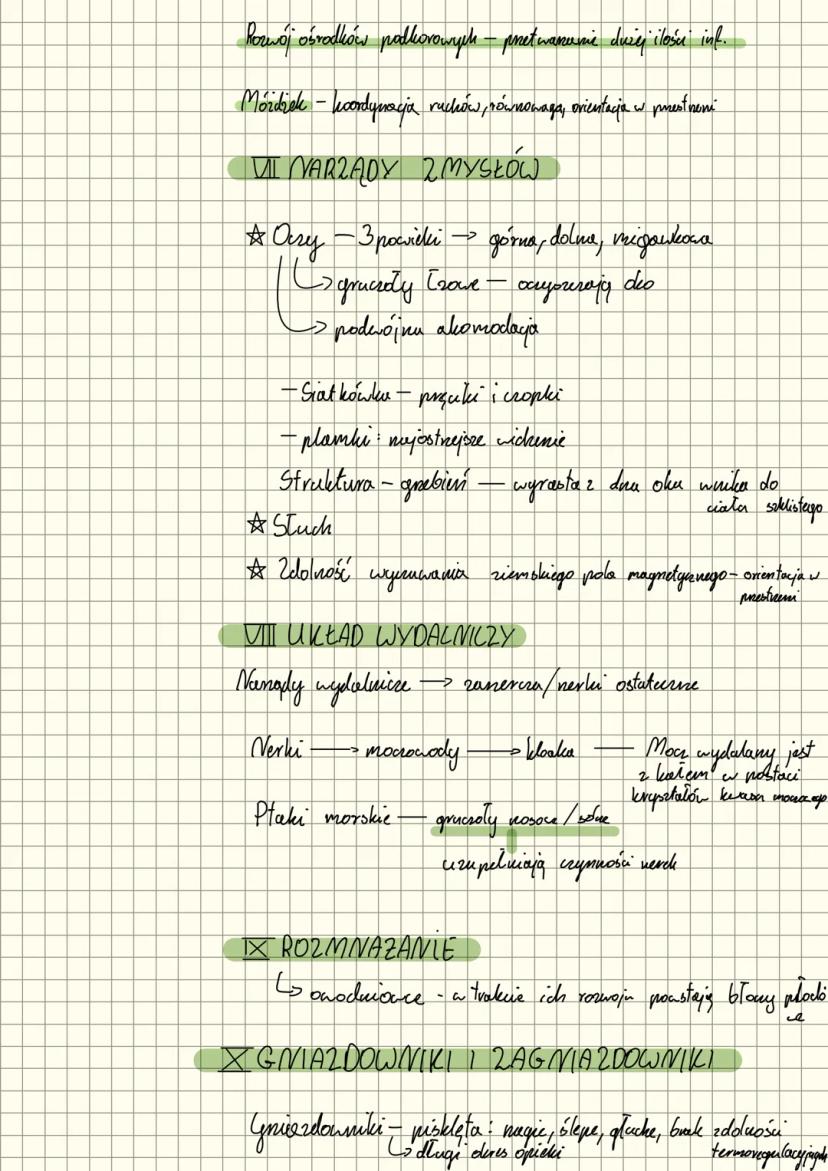 Rozwój ośrodków podkorowych – przetwarzanie dużej ilości inf.
Móżdżek – koordynacja ruchów, równowaga, orientacja w przestrzeni
VII NARZĄDY ZMYSŁÓW
☆ Oczy – 3 powieki → górna, dolna, migawkowa
↳ gruczoły łzowe – oczyszczają oko
↳ podwójna akomodacja
– Siatkówka – pręciki i czopki
– plamki : najostrzejsze widzenie
Struktura – grzebień – wyrasta z dna oka wnika do
ciała szklistego
☆ Słuch
☆ Zdolność wyczuwania ziemskiego pola magnetycznego – orientacja w
przestrzeni
VIII UKŁAD WYDALNICZY
Narządy wydalnicze → zanercza/nerki ostateczne
Nerki → moczowody → kloaka – Mocz wydalany jest
z kałem w postaci
kryształów kwasu moczowego
Ptaki morskie – gruczoły nosowe / solne
uzupełniają czynności nerek
IX ROZMNAŻANIE
↳ owodniowce - w trakcie ich rozwoju powstają błony płodo
we
X GNIAZDOWNIKI I ZAGNIAZDOWNIKI
Gniazdowniki – pisklęta : nagie, ślepe, głuche, brak zdolności
↳ długi okres opieki termoregulacyjnych